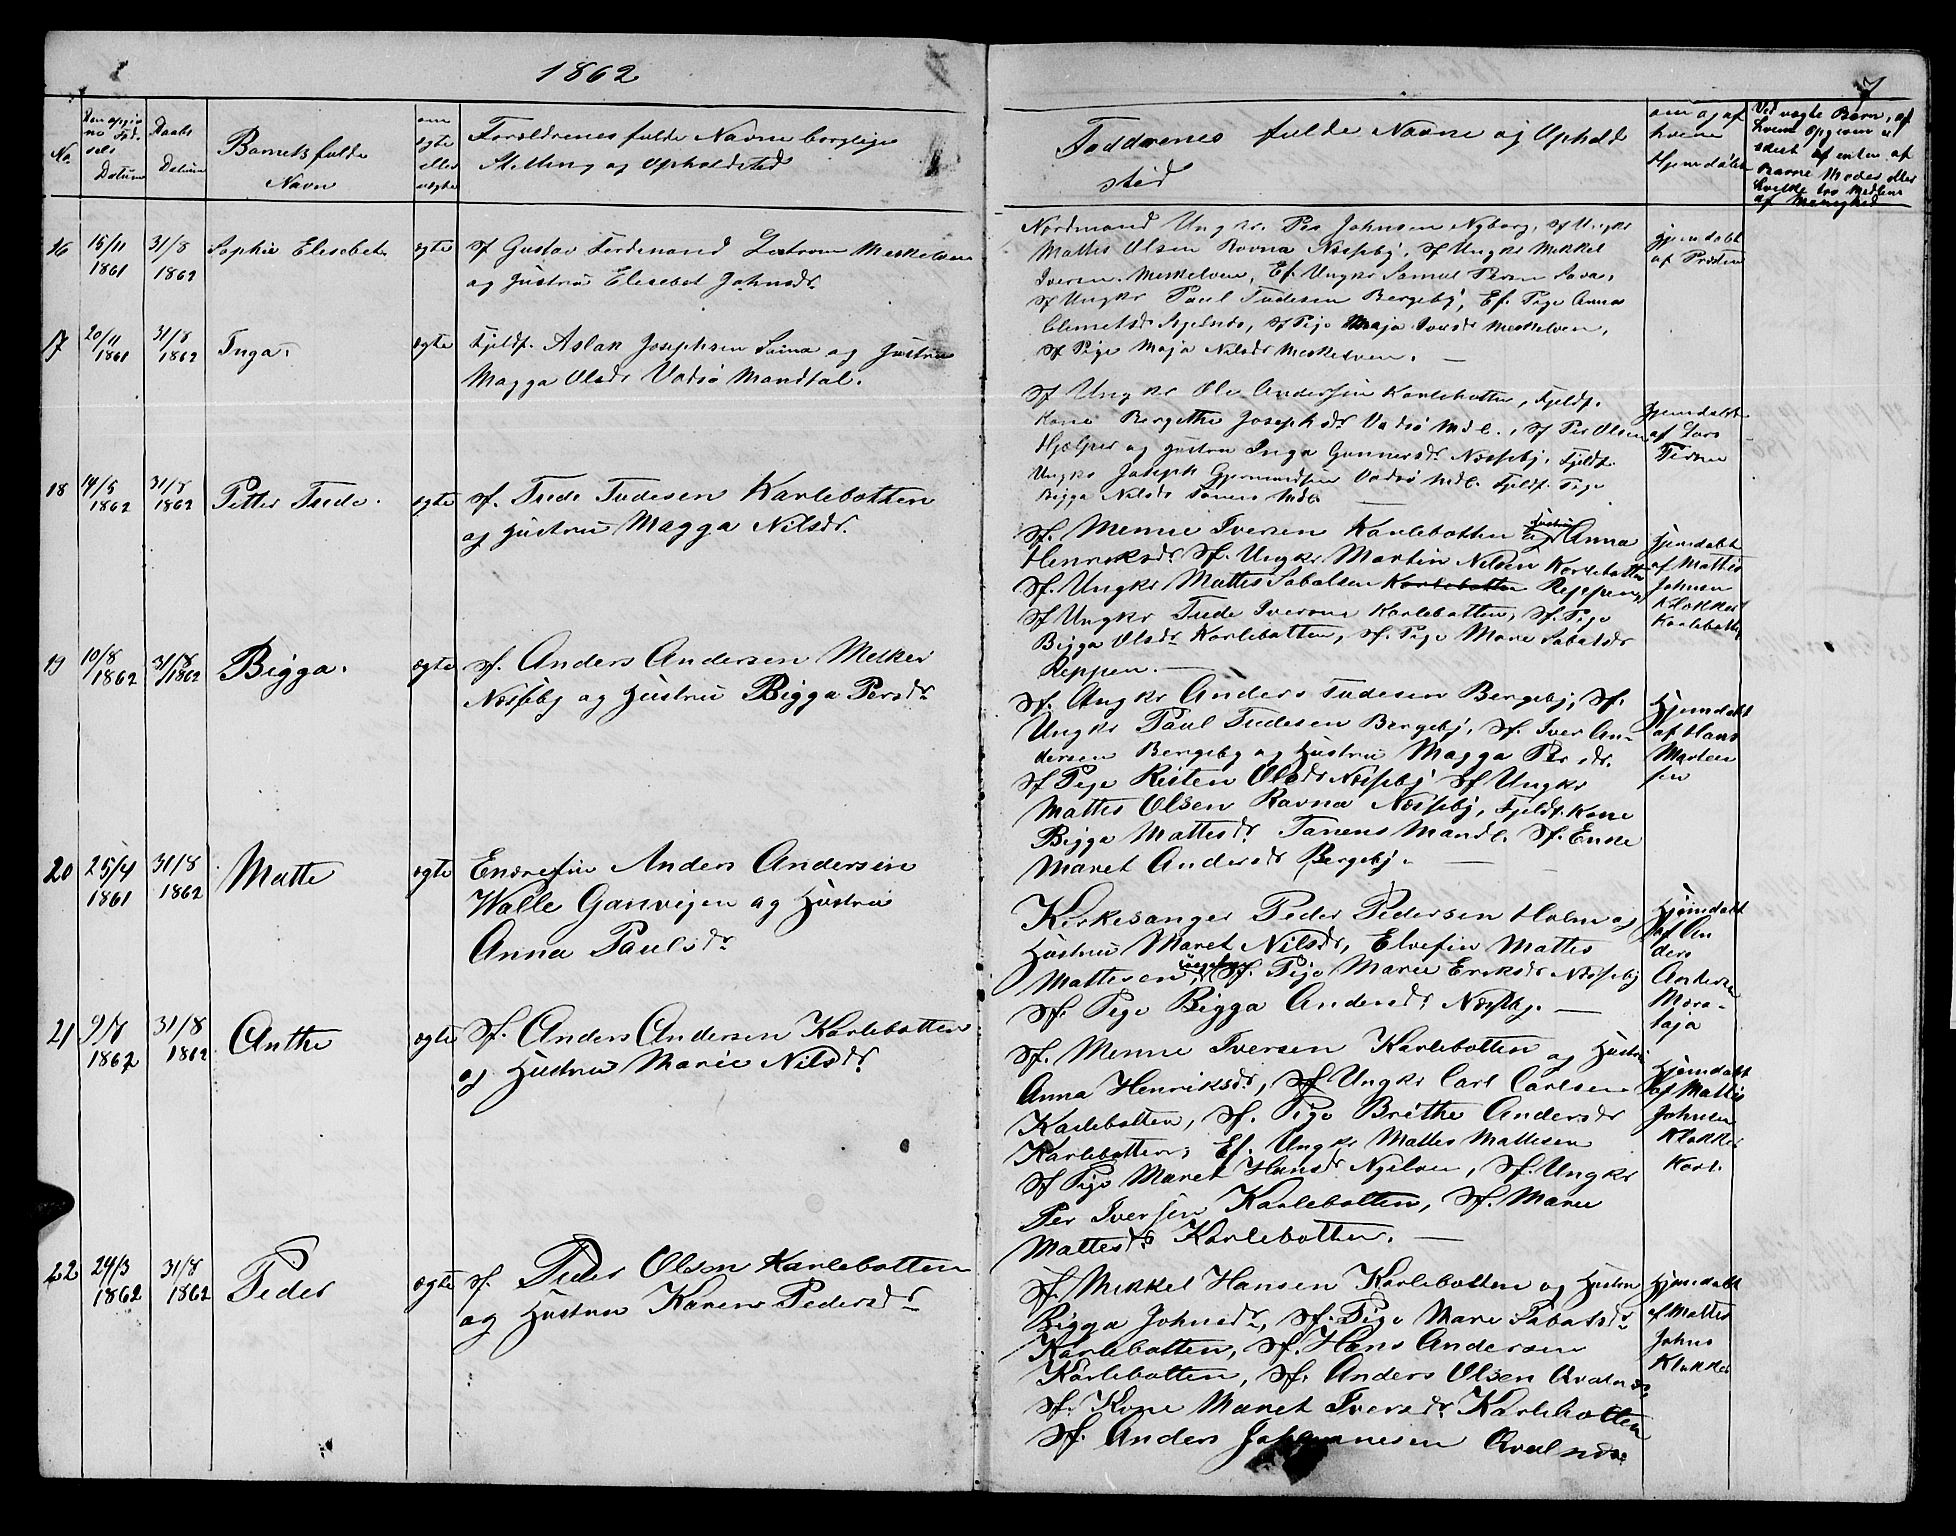 1862
7
No
Daabs
Datum
Barnets fulde
Navn
om
ægte
eller
uægte
Forældrenes fulde Navne borgelige
Stilling og Opholdsted
Faddrenes fulde Navne og Ophold
sted
om og af
hvem
Hjemdøbt
16
15/11
1861
31/8
1862
Sophie Elisebet
ægte
Sf Gustav Ferdinand Meskelven
og Hustru Elisebet Johnsdr
Nordmand Ungkr. Per Johnsen Nyborg, Sf Ungkr
Mattis Olsen Ravna Næsseby, Sf Ungkr Mikkel
Iversen Meskelven, Ef. Ungkr Samuel
Sf Ungkr Paul Tudesen Bergeby, Ef. Pige Anna
Sf Pige Maja Meskelven,
Sf Pige Maja Nilsdr Meskelven. —
Hjemdøbt
af
17
20/11
1861
31/8
1862
Inga.
ægte
Fjeldf. Aslak Josephsen og Hustru
Magga Olsdr Vadsø Mandtal.
Sf Ungkr Ole Andersen Karlebotten, Fjeldf.
Kone Bergithe Josephsdr Vadsø Mdl., Sf Per Olsen
Hjælper og Hustru Inga Gunnersdr Næsseby, Fjeldf.
Ungkr Joseph Vadsø Mdl. Fjeldf. Pige
Bigga Nilsdr Tanens Mdl. —
Hjemdøbt
af Lars
18
14/5
1862
31/8
1862
Petter Tude.
ægte
Sf. Tude Tudesen Karlebotten
og Hustru Magga Nilsdr.
Sf. Menne Iversen Karlebotten og Hustru Anna
Henriksdr Sf. Ungkr Martin Nilsen Karlebotten
Sf. Ungkr Mattis Sabalsen Karlebotten Reppen,
Sf Ungkr Tude Iversen Karlebotten, Sf. Pige
Bigga Olsdr Karlebotten, Sf. Pige Mare Sabalsdr
Reppen. —
Hjemdøbt
af Mattis
Johnsen
Klokker
Karlebotten
19
10/8
1862
31/8
1862
Bigga.
ægte
Sf. Anders Andersen
Næsseby og Hustru Bigga Persdr
Sf. Ungkr Anders Tudesen Bergeby, Sf.
Ungkr Paul Tudesen Bergeby, Sf. Iver An-
dersen Bergeby og Hustru Magga Persdr.
Sf Pige Risten Olsdr Næsseby Sf Ungkr
Mattis Olsen Ravna Næsseby, Fjeldf. Kone
Bigga Mattisdr. Tanens Mandl. Sf. Enke
Maret Andersdr Bergeby. —
Hjemdøbt
af Hans
20
25/4
1861
31/8
1862
Matte
ægte
Enarefin Anders Andersen
Walle og Hustru
Anna Paulsdr
Kirkesanger Peder Pedersen Holm og
Hustru Maret Nilsdr, Elvefin Mattis
Mattisen, Sf. Pige Marie Eriksdr Næsseby
Sf. Pige Bigga Andersdr Næsseby. —
Hjemdøbt
af An
ders
Andersen
21
9/8
1862
31/8
1862
Anthe
ægte
Sf. Anders Andersen Karlebotten
og Hustru Marie Nilsdr.
Sf. Menne Iversen Karlebotten og Hustru
Anna Henriksdr, Sf Ungkr Carl Carlsen
Karlebotten, Sf. Pige Brithe Andersdr
Karlebotten, Ef. Ungkr Mattis Mattisen
Sf Pige Maret Hansdr Nyelven, Sf. Ungkr
Per Iversen Karlebotten, Sf. Marie
Mattisdr Karlebotten. —
Hjemdøbt
af Mattis
Johnsen
Klokker
Karl.
22
29/3
1862
31/8
1862
Peder
ægte
Sf. Peder Olsen Karlebotten
og Hustru Karen Pedersdr
Sf. Mikkel Hansen Karlebotten og Hustru
Bigga Johnsdr, Sf. Pige Mare Sabalsdr
Karlebotten, Sf. Hans Andersen
Karlebotten, Sf. Anders Olsen
Sf. Kone Maret Iversdr Karlebotten
Sf. Anders Johannesen
Hjemdøbt
af Mattis
Johns
Klokker